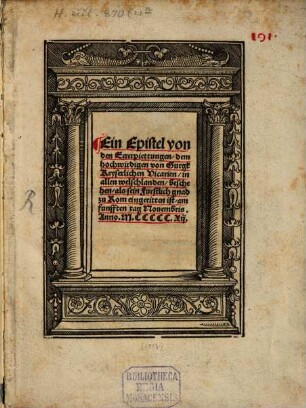 H. eccl. 870/42
191.
Ein Epistel von
den Eererpiettungen / dem
hochwirdigen von Gurgk
Keyserlichen Vicarien / in
allen welschlanden / besche
hen / als sein Fürstlich gnad
zu Rom eingeritten ist / am
funfften tag Nouembris.
Anno. M.CCCCC.Xij.
R
BIBLIOTHECA
REGIA
MONACENSIS